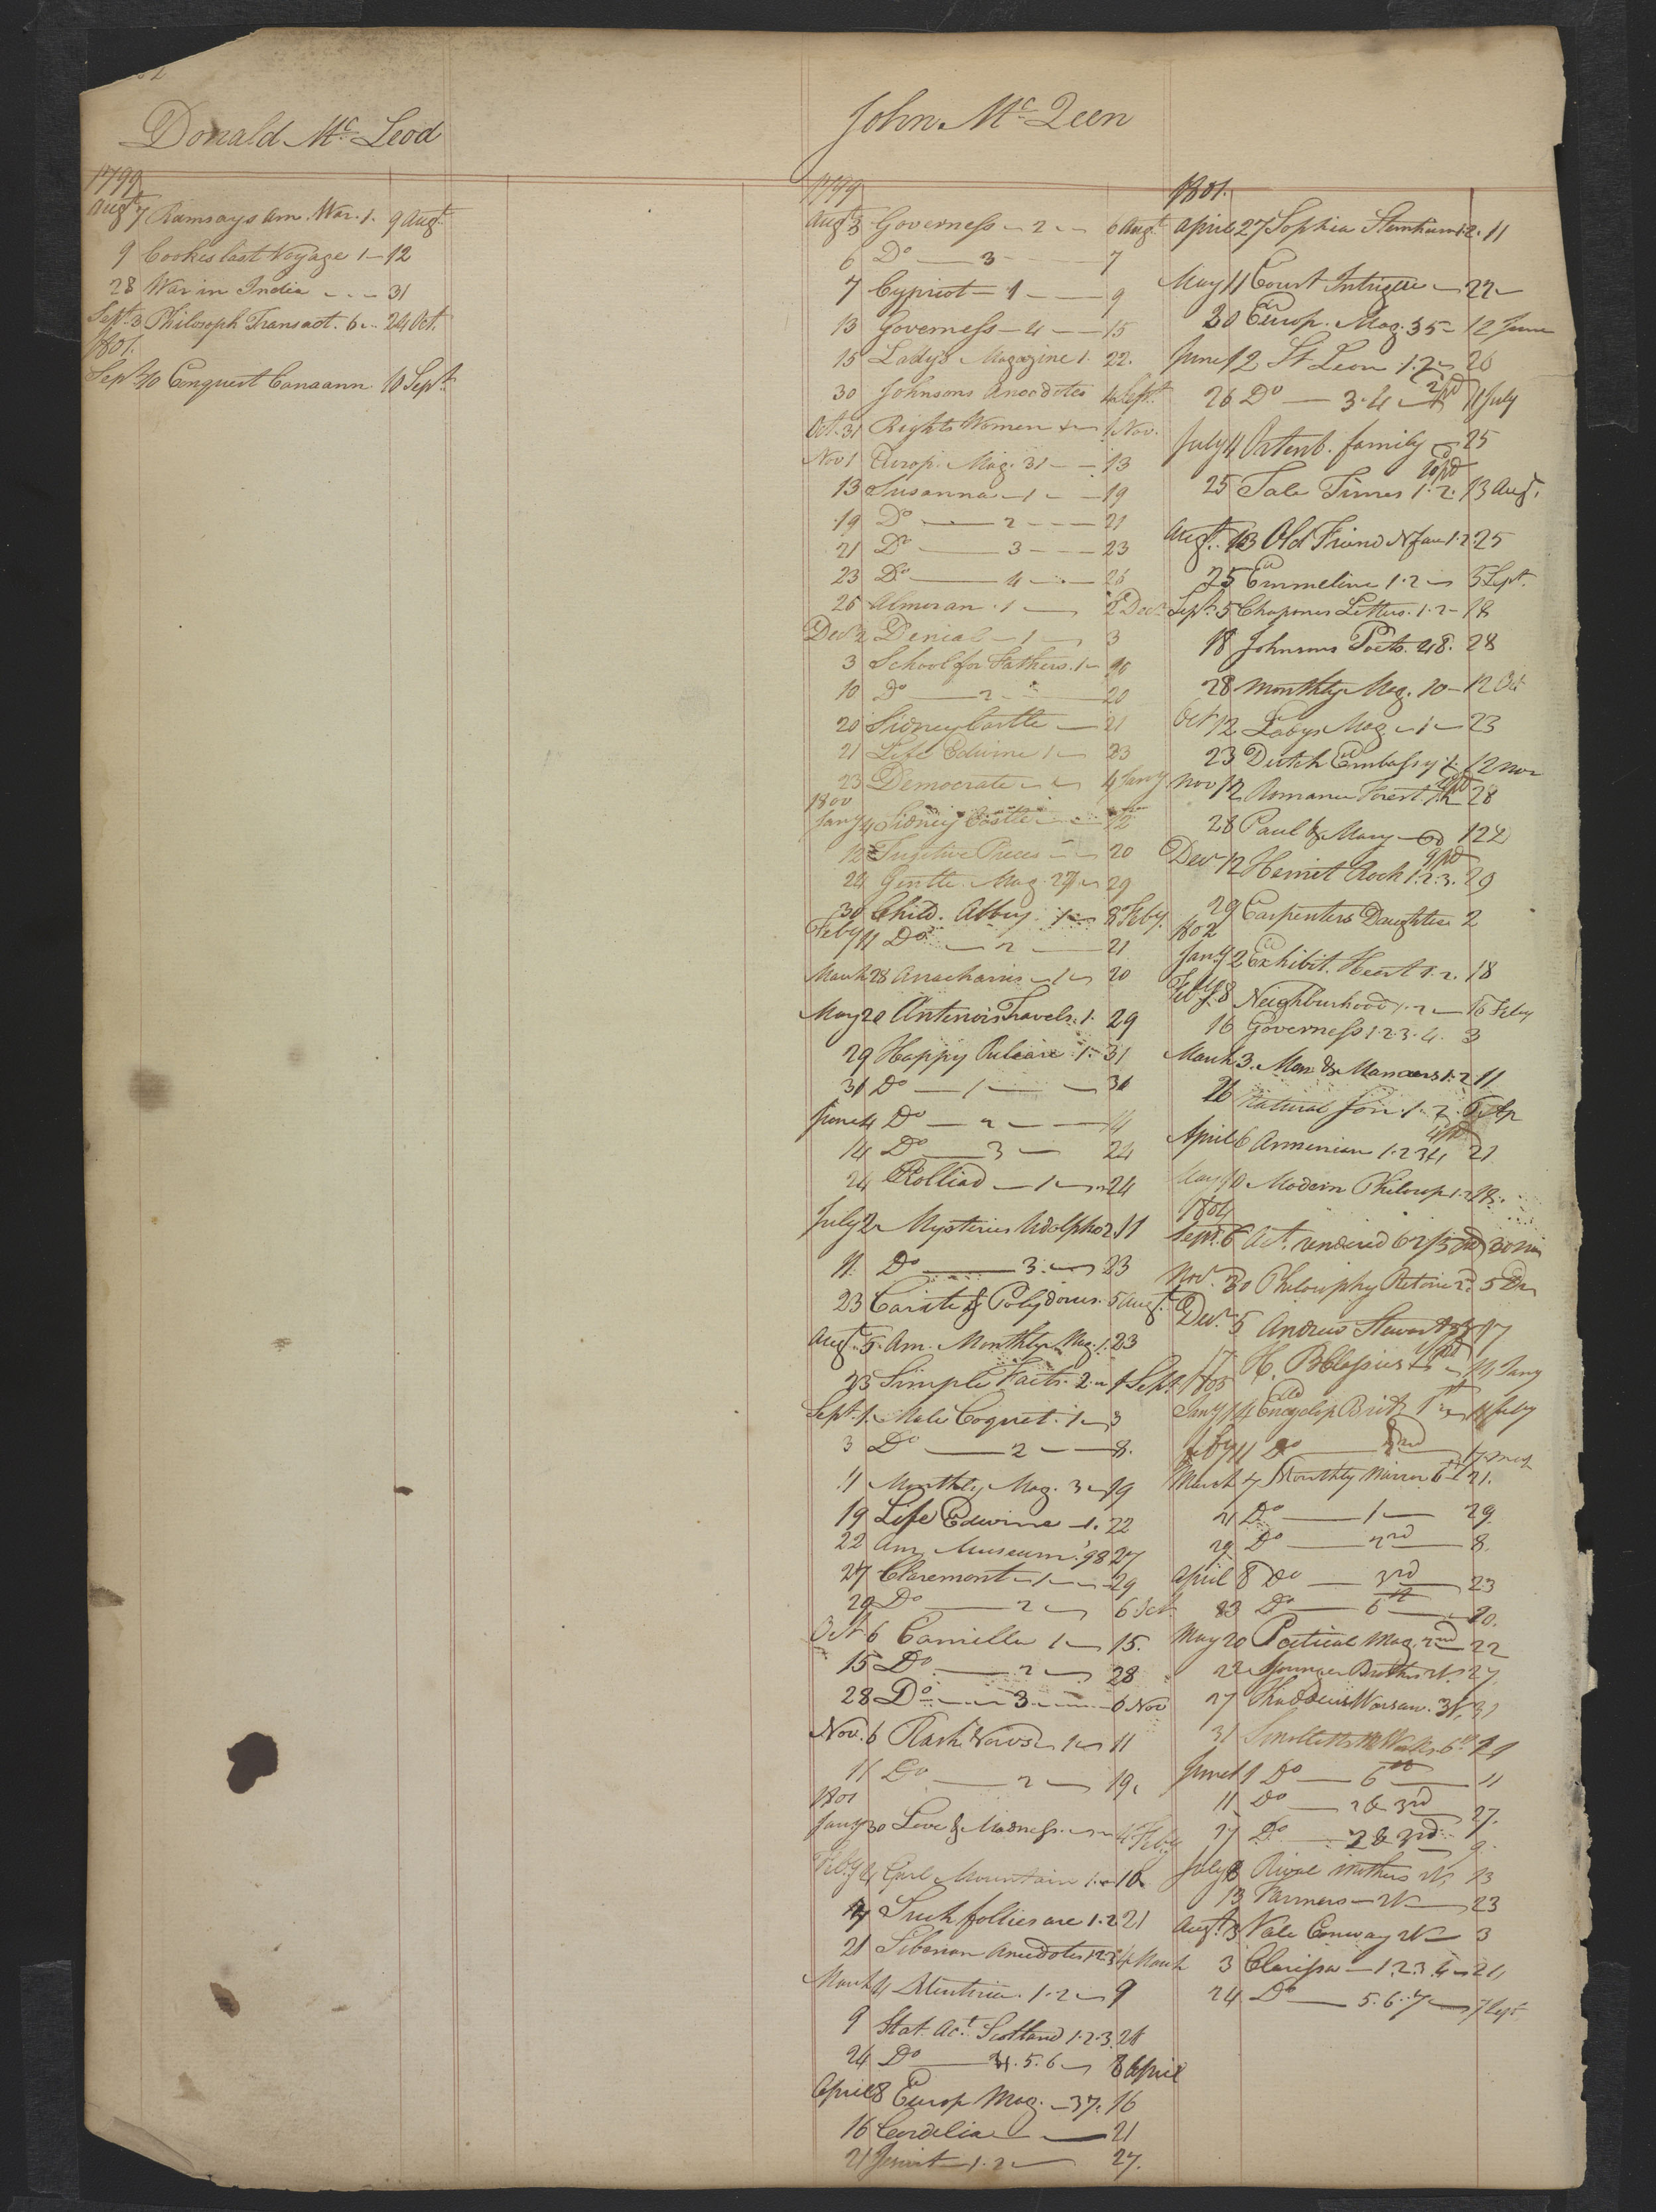 Donald Mc Leod
1799
Augt 7 Ramsays Am. War. 1. 9 Augt
9 Cookes last Voyage 1 — 12
28 War in India - - - 31
Sept 3 Philosoph Transact. 6 .. 24 Oct.
1801.
Sept 10 Conquest Canaann. 10 Sept
John Mc Queen
1799
Augt 3 Governess — 2 — 6 Augt
6 Do — 3 — 7
7 Cypriot — 1 — 9
13 Governess — 4 — 15
15 Ladys Magazine 1. 22.
30 Johnsons Anecdotes 4 Sept.
Oct. 31 Rights Women — 1 Nov.
Nov 1 Europ. Mag. 31 — 13
13 Susanna — 1 — 19
19 Do — 2 — 21
21 Do — 3 — 23
23 Do — 4 — 26
26 Almoran . 1 — 2 Decr
Decr 2 Denial — 1 — 3
3 School for Fathers . 1 — 10
10 Do — 2 — 20
20 Sidney Castle — 21
21 Life Edwine 1 — 23
23 Democrate — 4 Jany
1800
Jany 4 Sidney Castle — 12
12 Fugitive Pieces — 20
24 Gentle. Mag. 27 — 29
30 Child. Abbey . 1 — 8 Feby.
Feby 11 Do — 2 — 21
March 28 Anacharsis — 1 — 20
May 20 Antenors Travels. 1. 29
29 Happy 1. 31
31 Do — 1 — 31
June 4 Do — 2 — 14
14 Do — 3 — 24
24 Rolliad — 1 — 24
July 2 Mysteries Udolpho 2. 11
11 Do — 3. — 23
23 Carite & Polydorus. 5 Augt.
Augt. 5. Am. Monthly Mag. 1. 23
23 Simple Facts. 2 — 1 Sept.
Sept. 1. Male Coquet. 1 — 3
3 Do — 2 — 8.
11 Monthly Mag. 3 — 19
19 Life Edwine — 1. 22
22 Am. Museum. '98 27
27 Claremont — 1 — 29
29 Do — 2 — 6 Oct
Oct 6 Camilla 1 — 15.
15 Do — 2 — 28
28 Do — 3 — 6 Nov
Nov. 6 Rash Vows — 1 — 11
11 Do — 2 — 19.
1801
Jany 30 Love & Madness — 4 Feby
Feby 4 Girl Mountain 1. — 10
14 Such follies are 1. 2 21
21 Siberian Anecdotes 1 2 3 4 March
March 4 1. 2 — 9
9 Stat. Act. Scotland 1. 2. 3. 24
24 Do — 4. 5. 6 — 8 April
April 8 Europ Mag. — 37. 16
16 Cordelia — 21
21 Jesuit — 1. 2 — 27.
1801.
April 27 Sophia Sternheim 1. 2. 11
May 11 Court Intrigue — 22 —
30 Europ. Mag. 35 — 12 June
June 12 St Leon 1. 2 — 26
26 Do — 3. 4 — 11 July
July 11 Ortenb. family — 25
25 Tale Times 1. 2. 13 Augt.
Augt. 13 Old Friend N face 1. 2 25
25 Emmeline 1. 2 — 5 Sept.
Sept. 5 Chapones Letters . 1. 2 — 18
18 Johnsons Poets. 48. 28
28 Monthly Mag. 10 — 12 Oct
Oct 12 Ladys Mag — 1 — 23
23 Dutch Embassy 12 Nov
Nov 12 Romance Forest 1. 2 28
28 Paul & Mary — 12 D
Decr 12 Hermit Rock 1. 2. 3. 29
29 Carpenters Daughter 2
1802
Jany 2 Exhibit. Heart 1. 2. 18
Feby 8 Neighburhood 1. 2 — 16 Feby
16 Governess 1. 2. 3. 4. 3
March 3. Men & Manners 1. 2 11
26 Natural Son . 1. 2. 6 Ap
April 6 Armenian 1. 2 3 4 21
May 10 Modern Philosop 1. 2 18.
1804
Sept. 6 Act. rendered 30 Nov
Nov. 30 Philosophy Rétoric 2. 5 Dr
Decr. 5 Andrew Stewart 17
17 H. 14 Jany
1805
Jany 14 Encyclop Brit 1st 11 feby
feby 11 Do — 2nd 7 March
March 7 Monthly Mirror 6th 21.
21 Do — 1 — 29
29 Do — 2nd — 8.
April 8 Do — 3rd — 23
23 Do — 6th — 20.
May 20 Poetical Mag. 2nd 22
22 Younger Brother 27
27 Thaddeus Warsaw. 31
31 Smolletts Works 6th
June 1 Do — 6th — 11
11 Do — 2 & 3rd 27.
27 Do — 2 & 3rd 9.
July 8 Rival Mothers 13
13 Farmers — 23
Augt. 3 Vale Conway 3
3 Clarissa — 1. 2. 3. 4 — 24
24 Do — 5. 6. 7 — 7 Sept